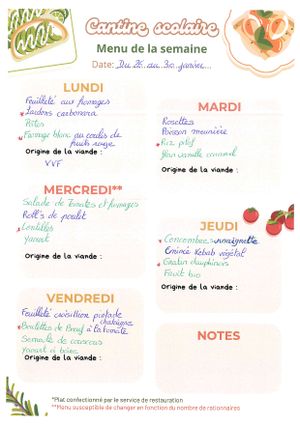 Cantine scolaire
Menu de la semaine
Date: Du 26 au 30 janvier...
LUNDI
Feuilleté aux fromages
*Lardons carbonara
Pâtes
*Fromage blanc au coulis de
fruits rouge
Origine de la viande :
VVF
MARDI
Rosettes
Poisson meunière
*Riz pilaf
Flan vanille caramel
Origine de la viande :
MERCREDI**
Salade de Tomates et fromages
Roll's de poulet
*Lentilles
Yaourt
Origine de la viande :
JEUDI
*Concombres vinaigrette
Emincé Kebab végétal
*Gratin dauphinois
Fruit bio
Origine de la viande :
VENDREDI
Feuilleté croisillon
*Boulettes de Bœuf à la tomate
Semoule de couscous
Yaourt à boire
Origine de la viande :
NOTES
*Plat confectionné par le service de restauration
**Menu susceptible de changer en fonction du nombre de rationnaires